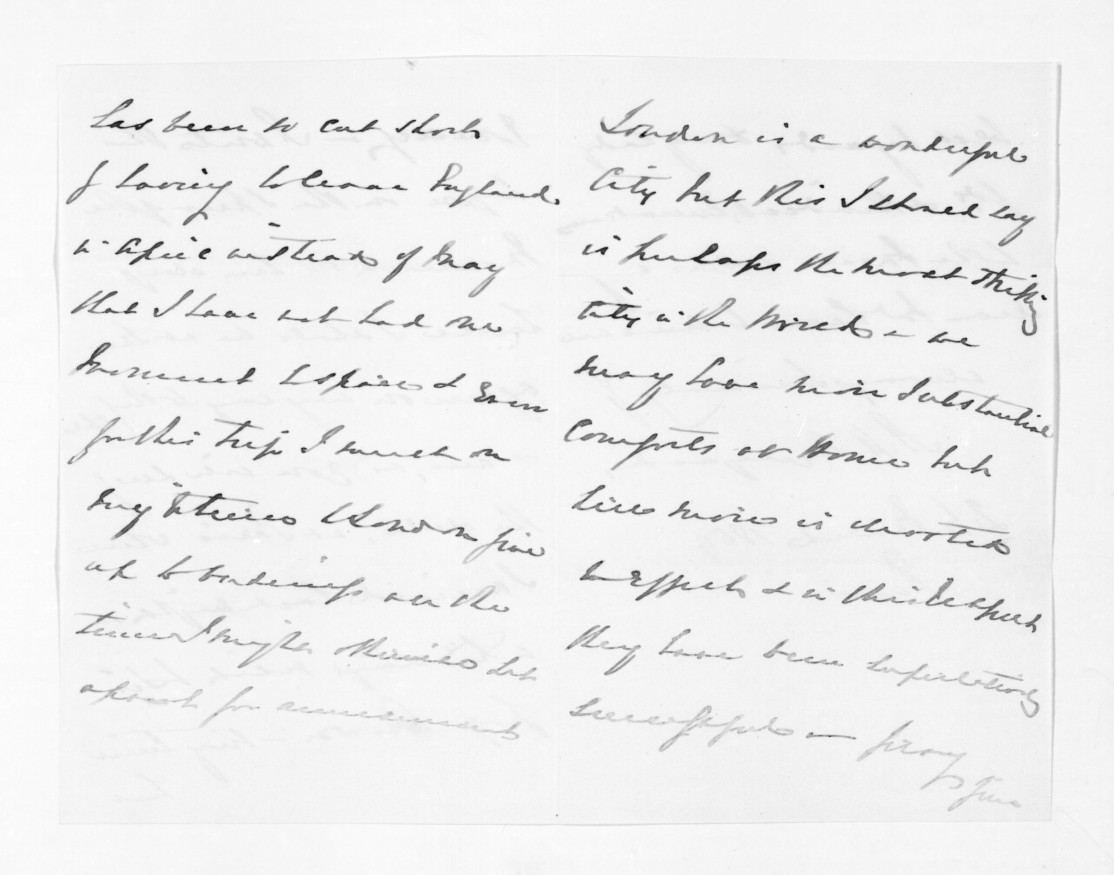 has been so cut short
of having to leave England
in April instead of May
that I have not had one
moment to spare & even
for this trip I must on
my return to London give
up to business all the
time I might otherwise set
apart for amusement
London is a wonderful
City but this I should say
is perhaps the most striking
City in the World - we
may have more substantial
comforts at Home but
here more is devoted
to Effect & in this respect
they have been superlatively
successful — pray
give